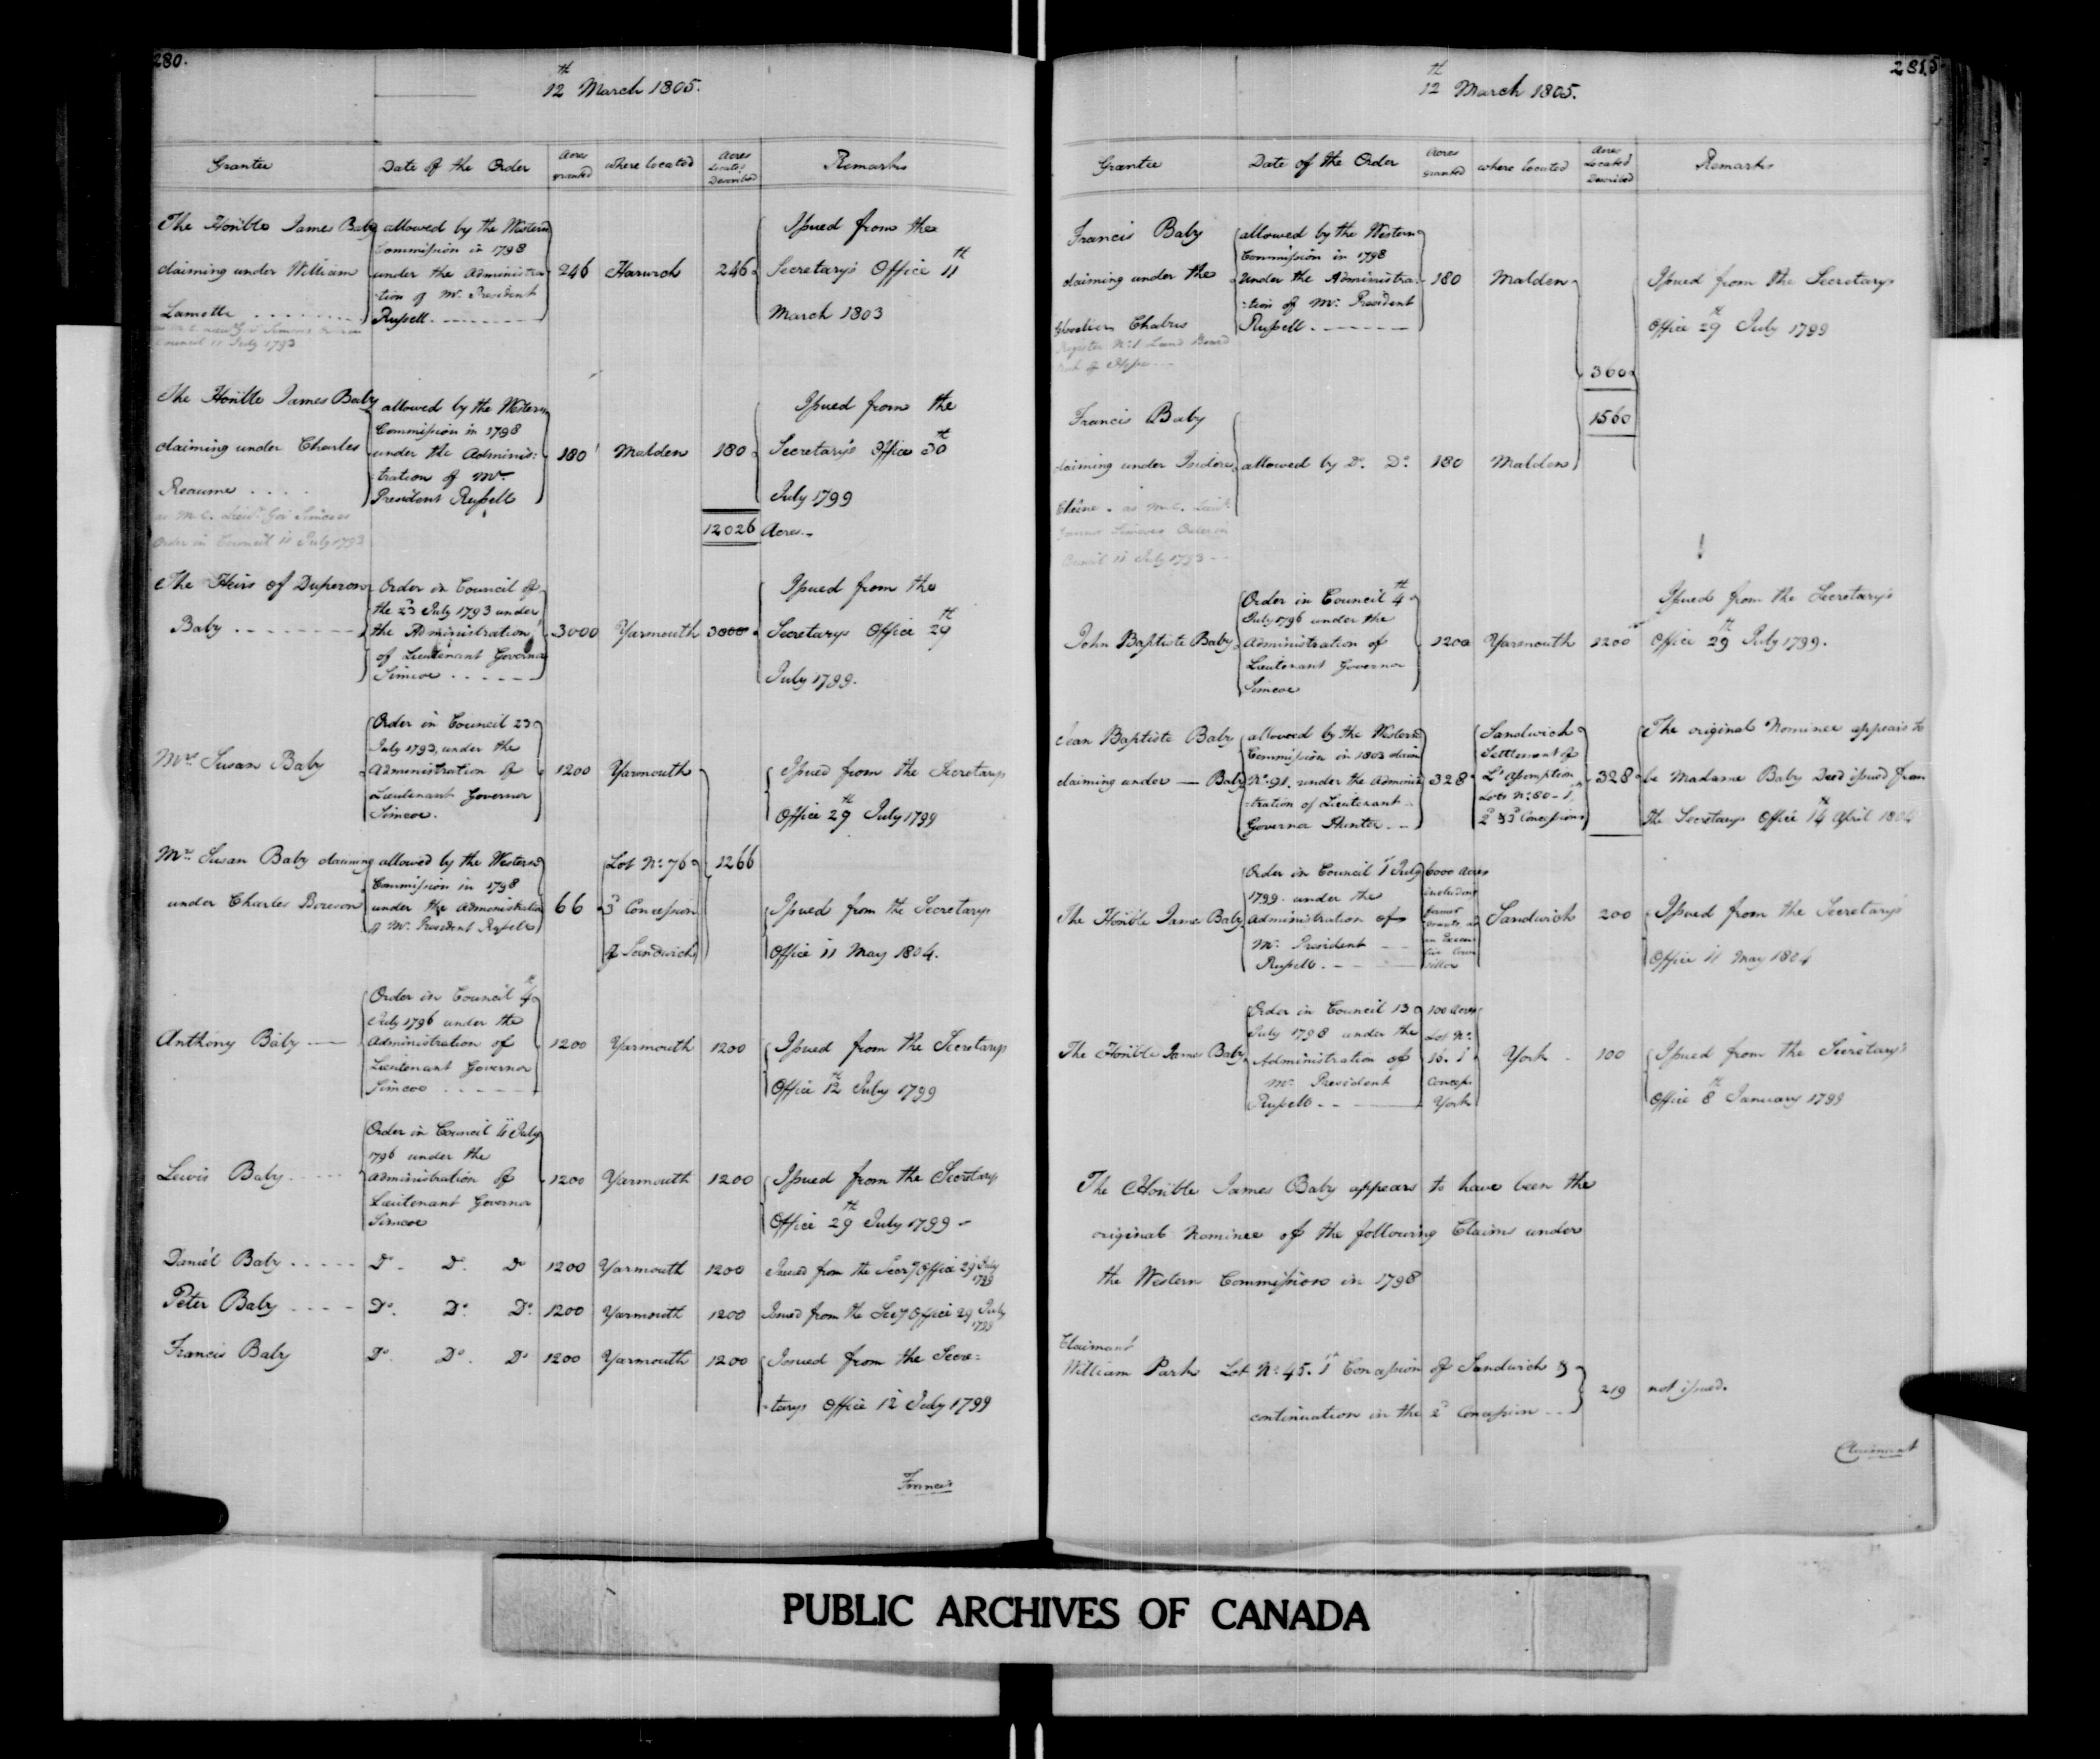 280.
12th March 1805.
Grantee
Date of the Order
Acres granted
where located
Acres Located & Described
Remarks
The Honble James Baby
claiming under William
Lamotte . . . . . . . .
Council 11 July 1793
allowed by the Western
Commission in 1798
under the Administra
-tion of Mr. President
Russell. - - - - - -
246
Harwich
246
Issued from the
Secretary's Office 11th
March 1803
The Honble James Baby
claiming under Charles
Reaume . . . .
as M.C. Lieut. Gov Simcoes
Order in Council 11 July 1793
allowed by the Western
Commission in 1798
under the Adminis:
tration of Mr.
President Russell
180
Malden
180
Issued from the
Secretary's Office 30th
July 1799
12026 Acres.-
The Heirs of Duperon
Baby - - - - - - - -
Order in Council of
the 23d July 1793 under
the Administration
of Lieutenant Governor
Simcoe . . - - - -
3000
Yarmouth
3000
Issued from the
Secretarys Office 29th
July 1799.
Mrs Susan Baby
Order in Council 23d
July 1793, under the
Administration of
Lieutenant Governor
Simcoe.
1200
Yarmouth
Issued from the Secretarys
Office 29th July 1799
Mrs Susan Baby claiming
under Charles Boucon
allowed by the Western
Commission in 1798
under the Administration
of Mr. President Russell
66
Lot No. 76
3d Concession
of Sandwich
1266
Issued from the Secretarys
Office 11 May 1804.
Anthony Baby ——
Order in Council 4th
July 1796 under the
Administration of
Lieutenant Governor
Simcoe . - - - - -
1200
Yarmouth
1200
Issued from the Secretarys
Office 12th July 1799
Lewis Baby - - - - -
Order in Council 4th July
1796 under the
Administration of
Lieutenant Governor
Simcoe
1200
Yarmouth
1200
Issued from the Secretarys
Office 29th July 1799 -
Daniel Baby - - - - -
Do. Do. Do
1200
Yarmouth
1200
Issued from the Secry Office 29 July 1799
Peter Baby - - - -
Do. Do. Do.
1200
Yarmouth
1200
Issued from the Secy Office 29 July 1799
Francis Baby
Do. Do. Do
1200
Yarmouth
1200
Issued from the Secre=
-tarys Office 12 July 1799
Francis
281.
12th March 1805.
Grantee
Date of the Order
Acres Granted
where located
Acres Located Described
Remarks
Francis Baby
claiming under the
Chabris
Register No. 1 Land Board
allowed by the Western
Commission in 1798
Under the Administra-
-tion of Mr. President
Russell. - - - - -
180
Malden
Issued from the Secretarys
Office 29th July 1799
360
1560
Francis Baby
claiming under Isidore
Chêne . as M.C. Lieut.
Simcoes Order in
Council 11 July 1793 - -
allowed by Do. Do.
180
Malden
John Baptiste Baby
Order in Council 4th
July 1796 under the
Administration of
Lieutenant Governor
Simcoe
1200
Yarmouth
1200
Issued from the Secretary's
Office 29th July 1799.
Jean Baptiste Baby
claiming under — Baby
allowed by the Western
Commission in 1803 claim
No. 91. under the Adminis
-tration of Lieutenant
Governor Hunter. --
328
Sandwich
Settlement of
L'Assomption
Lots No. 80 - 1st,
2d & 3d Concessions
328
The original Nominee appears to
be Madame Baby Deed issued from
the Secretarys Office 14th April 1804
The Honble James Baby
Order in Council 1st July
1799. under the
Administration of
Mr. President - -
Russell. - - - -
6000 Acres
including
former
Grants as
an Execu
tive Coun
sellor
Sandwich
200
Issued from the Secretarys
Office 11 May 1804
The Honble James Baby
Order in Council 13
July 1798 under the
Administration of
Mr. President
Russell. - - - -
100 Acres
Lot No.
15. 1
Concess
York
York -
100
Issued from the Secretary's
Office 8th January 1799
The Honble James Baby appears to have been the
original Nominee of the following Claims under
the Western Commission in 1798
Claimant
William Park Lot No. 45. 1st Concession of Sandwich &
continuation in the 2d Concession - -
219
not issued.
Claimant
PUBLIC ARCHIVES OF CANADA